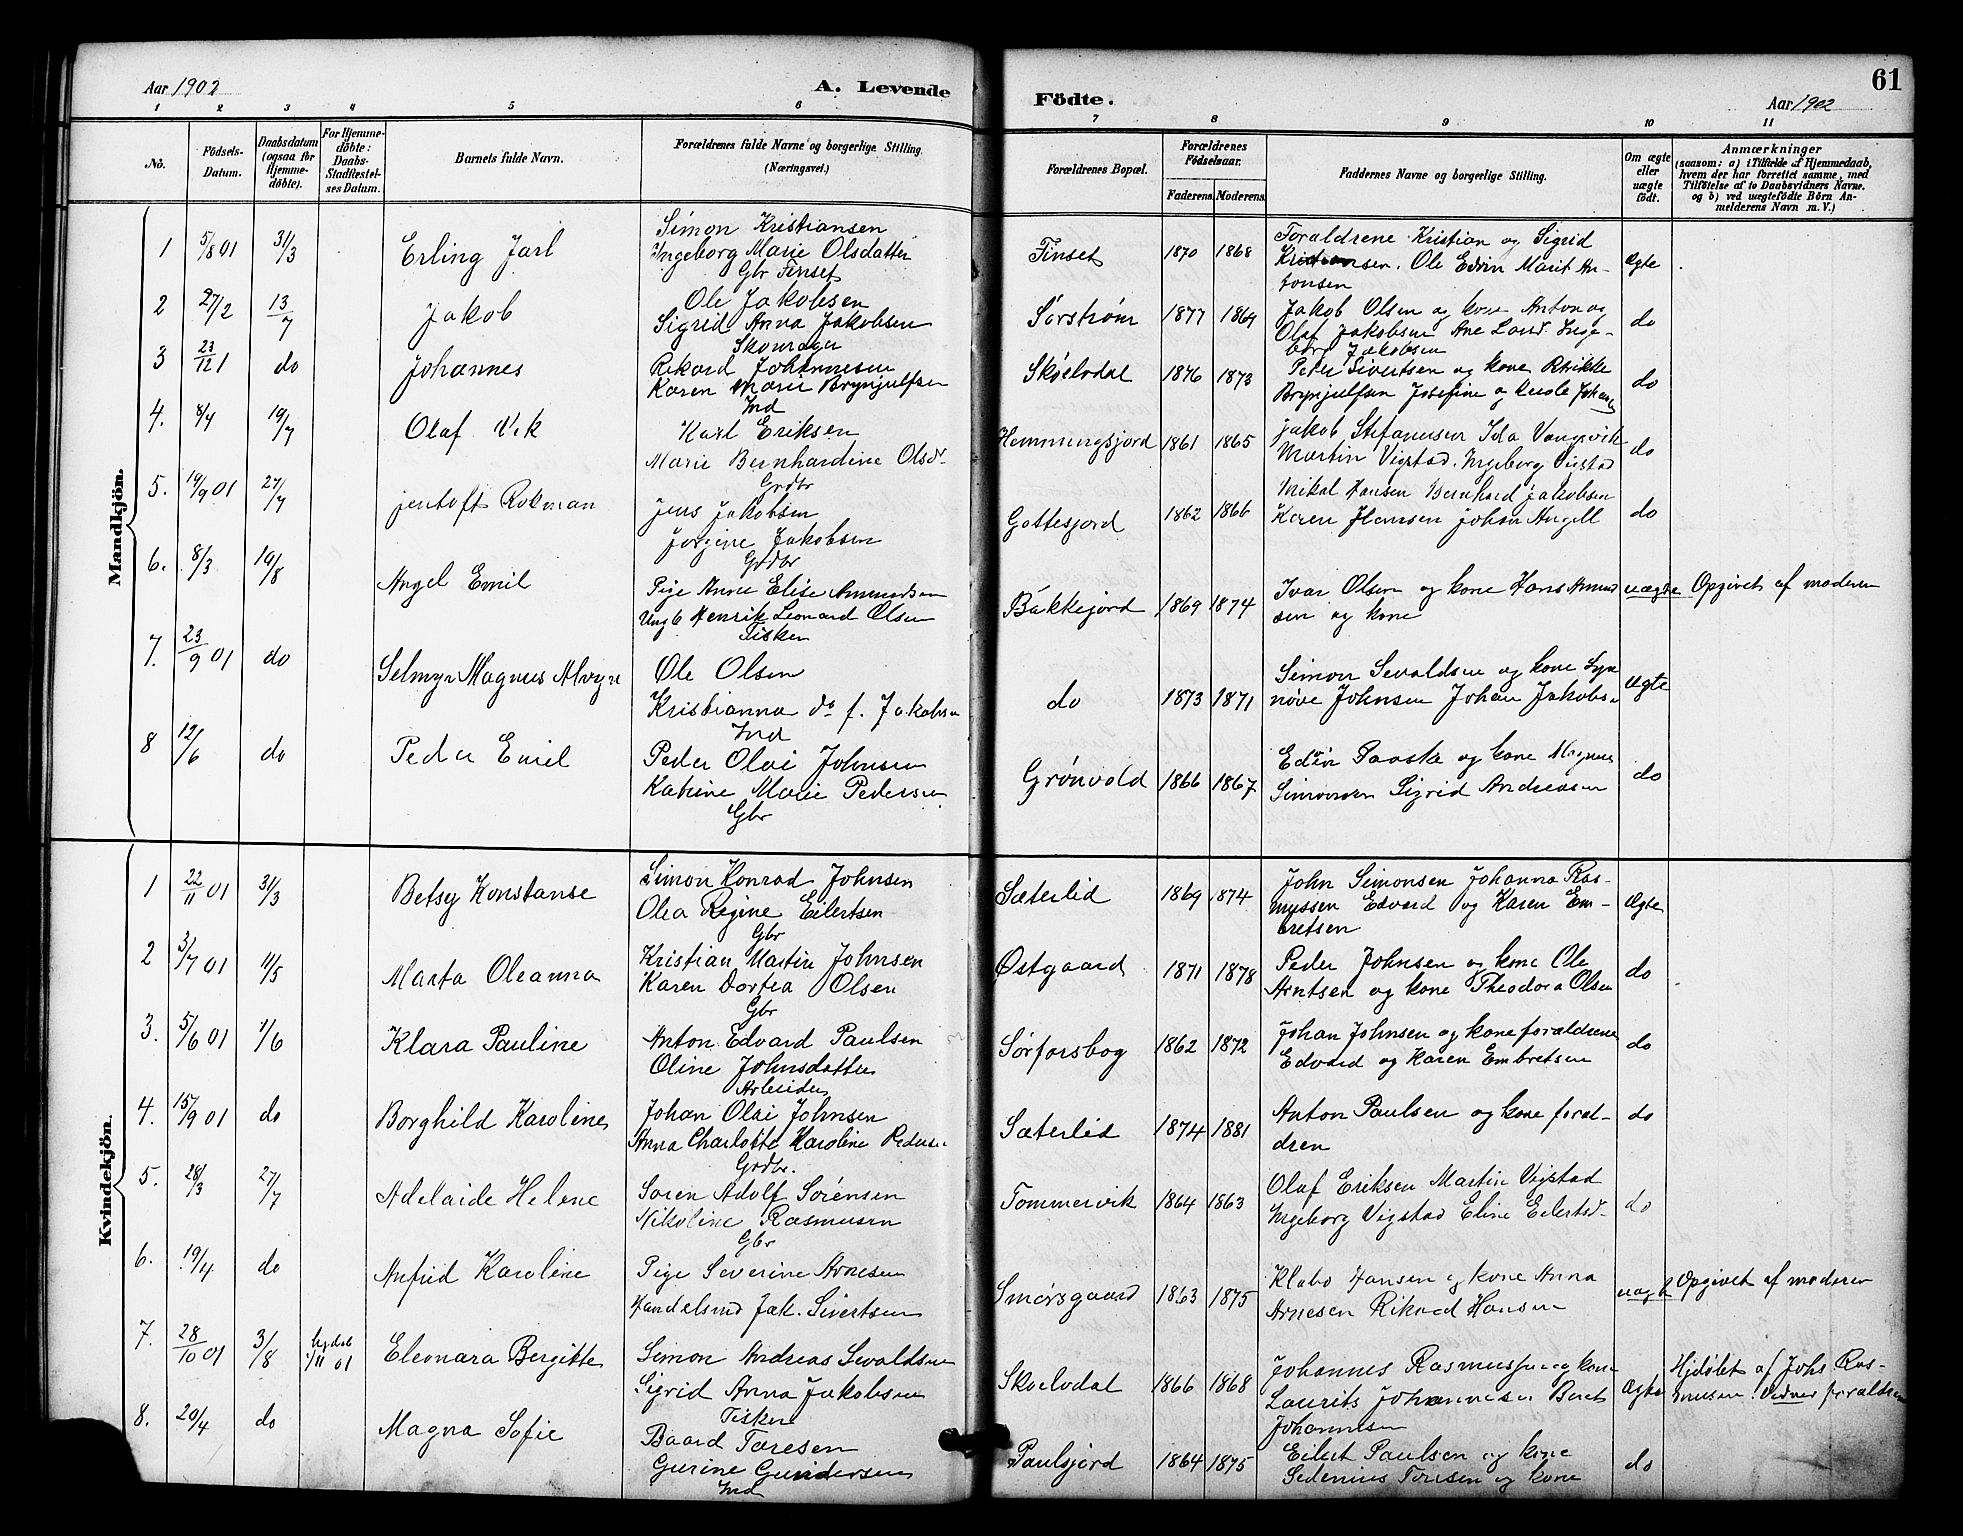 Aar 1902
A. Levende
Födte.
Aar 1902
61
1 2 3 4 5 6 7 8 9 10 11
No.
Födsels-Datum.
Daabsdatum (ogsaa for Hjemme-döbte).
For Hjemme-döbte: Daabs-Stadfæstel-ses Datum.
Barnets fulde Navn.
Forældrenes fulde Navne og borgerlige Stilling.
(Næringsvei.)
Forældrenes Bopæl.
Forældrenes Födselsaar.
Faderens. Moderens.
Faddernes Navne og borgerlige Stilling.
Om ægte eller uægte födt.
Anmærkninger
(saasom: a) i Tilfælde af Hjemmedaab, hvem der har forrettet samme, med Tilföielse af to Daabsvidners Navne. og b) ved uægtefödte Börn An-melderens Navn m. V.)
Mandkjön.
1 5/8 01 31/3 Erling Jarl
Simon Kristiansen
Ingeborg Marie Olsdatter
Gbr Finset
Finset 1870 1868
Foraldrene Kristian og Sigrid
Kristiansen. Ole Edvin Marit An-
tonsen
Ægte
2 27/2 13/7 Jakob
Ole Jakobsen
Sigrid Anna Jakobsen
Sørstrøm 1877 1869
Jakob Olsen og kone Anton og
Olaf Jakobsen Ane Lund Inge-
borg Jakobsen
do
3 23/12 1 do Johannes
Rikard Johannesen
Karen Marie Brynjulfsen
Ind
Skøelvdal 1876 1873
Peder Sivertsen og kone
Brynjulfsen Josefine og
do
4. 8/4 19/7 Olaf Vik
Karl Eriksen
Marie Bernhardine Olsdr
Grdbr
Hemmingsjord 1861 1865
Jakob Stefanusen Ida Vangsvik
Martin Vigstad. Ingeborg Vigstad
do
5. 19/9 01 27/7 Jentoft Rolman
Jens Jakobsen
Jørgine Jakobsen
Grdbr
Gottesjord 1862 1866
Mikal Hansen Bernhard Jakobsen
Karen Hansen Johan Angell
do
6. 8/3 19/8 Angel Emil
Pige Anne Elise Amundsen
Ung k Henrik Leonard Olsen
Fisker
Bakkejord 1869 1874
Ivar Olsen og kone Hans Amund
sen og kone
uægte Opgivet af moderen
7. 23/9 01 do Selmyr Magnus Alvyn
Ole Olsen
Kristianna do f. Jakobsen
Ind
do 1873 1871
Simon Sevaldsen og kone Syn
nøve Johnsen Johan Jakobsen
Ægte
8 12/6 do Peder Emil
Peder Olai Johnsen
Katrine Marie Pedersen
Gbr
Grønvold 1866 1867
Edvin Paaske og kone Magnus
Simonsen Sigrid Andreasen
do
Kvindekjön.
1 22/11 01 31/3 Betsy Konstanse
Simon Konrad Johnsen
Olea Regine Eilertsen
Gbr
Sæterlid 1869 1874
John Simonsen Johanna Ras-
mussen Edvard og Karen Em-
bretsen
Ægte
2 3/7 01 11/5 Marta Oleanna
Kristian Martin Johnsen
Karen Dortea Olsen
Gbr
Østgaard 1871 1878
Peder Johnsen og kone Ole
Arntsen og kone Theodora Olsen
do
3. 5/6 01 1/6 Klara Pauline
Anton Edvard Paulsen
Oline Johnsdatter
Arbeider
Sørforsbog 1862 1872
Johan Johnsen og kone foraldrene
Edvard og Karen Embretsen
do
4. 15/9 01 do Borghild Karoline
Johan Olai Johnsen
Anna Charlotte Karoline Peders
Grdbr.
Sæterlid 1874 1881
Anton Paulsen og kone foral-
dren
do
5. 28/3 27/7 Adelaide Helene
Søren Adolf Sørensen
Nikoline Rasmusen
Gbr
Tommervik 1864 1863
Olaf Eriksen Martin Vigstad
Ingeborg Vigstad Eline Eilertsd.
do
6. 19/4 do Anfrid Karoline
Pige Severine Arnesen
Handelsmd Jak. Sivertsen
Smørsgaard 1863 1875
Klabo Hansen og kone Anna
Arnesen Rikard Hansen
uægt Opgivet af moderen
7. 28/10 01 3/8 1/11 01 Eleonara Bergitte
Simon Andreas Sevaldsen
Sigrid Anna Jakobsen
Fisker
Skoelvdal 1866 1868
Johannes Rasmussen og kone
Laurits Johannesen Beret
Johannesen
Ægte
Hjdøbt af Johs Ras-
musen. Vidner foraldren
8. 20/4 do Magna Sofie
Baard Toresen
Gurine Gundersen
Ind
Paulsjord 1864 1875
Eilert Paulsen og kone
Sedenius Toresen og kone
do